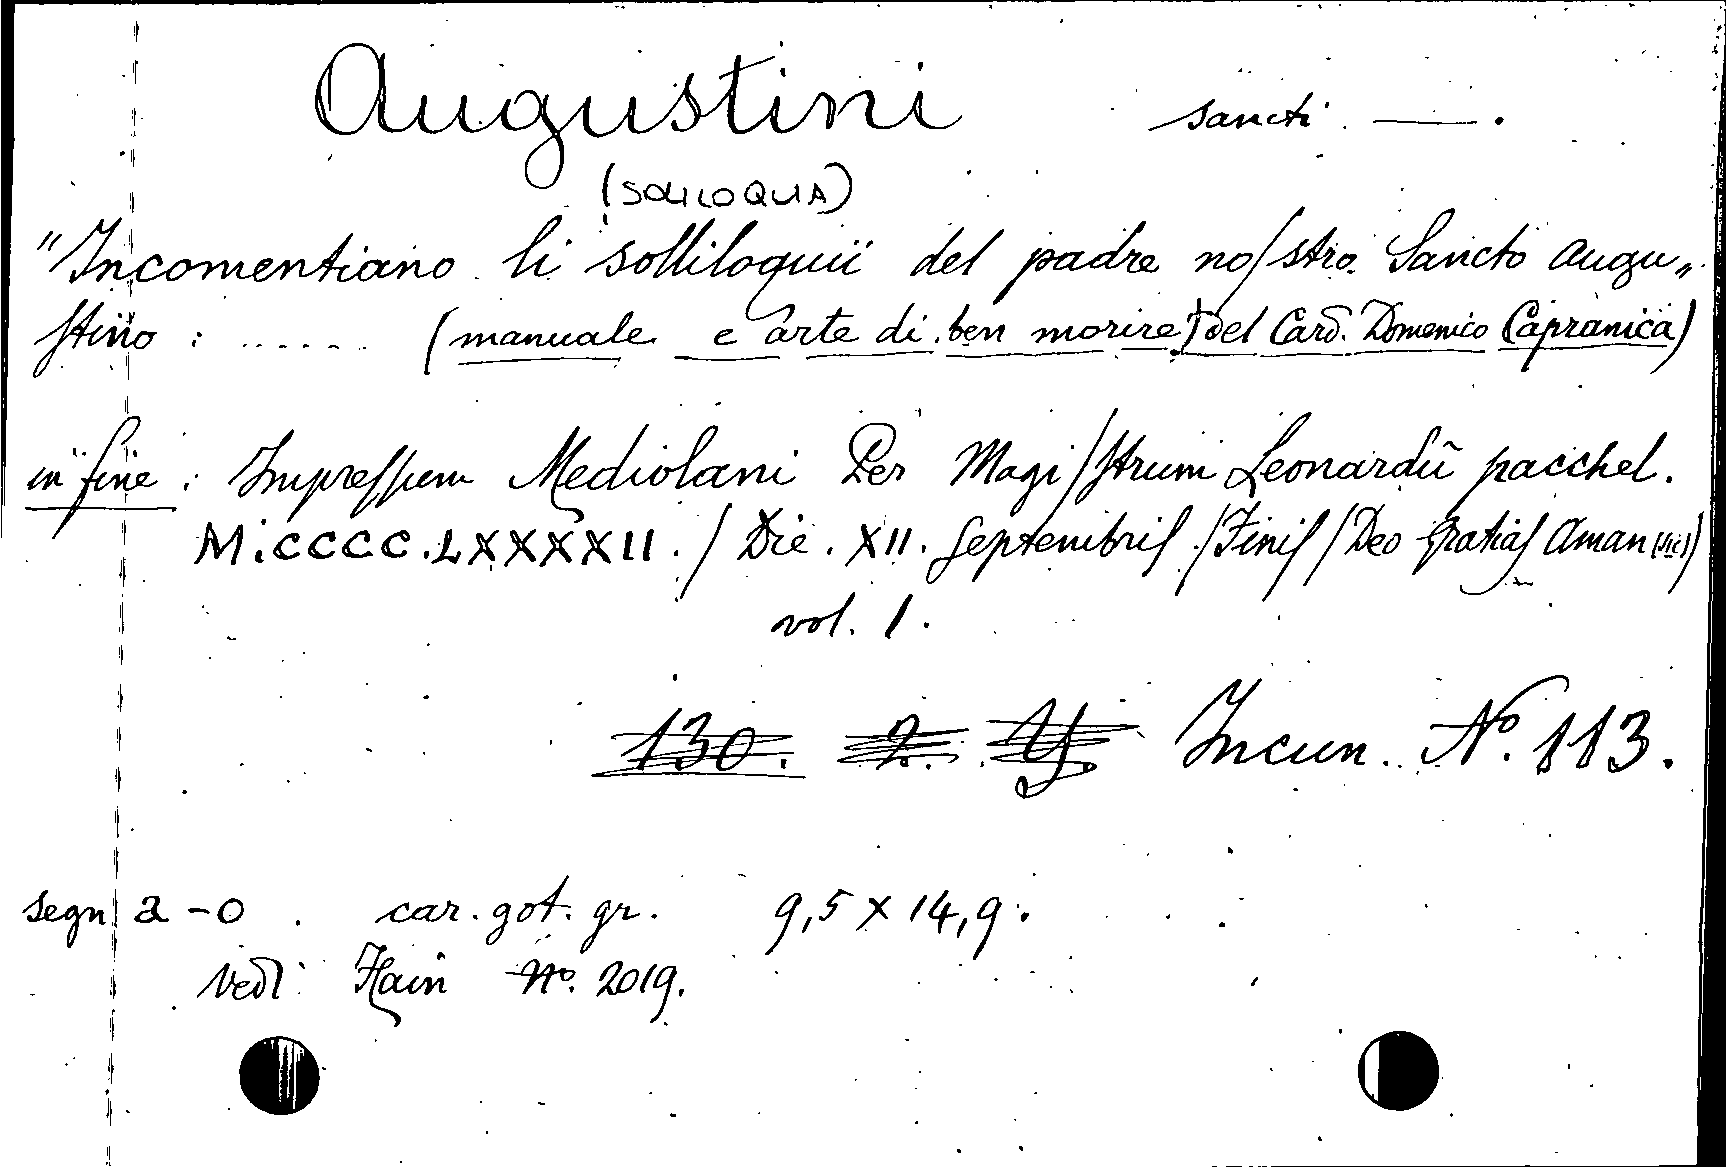 Augustini sancti ——.
(SOLILOQUIA)
"Incomentiano li solliloquii del padre no/stro Sancto augu„
ſtino : ...... (manuale e arte di ben morire) del Card. Domenico Capranica)
in fine : Impreſſum Mediolani Per Magi/ſtrum Leonardū pacchel.
M.CCCC.LXXXXII. / Die. XII. Septembriſ /Finiſ / Deo gratiaſ Aman (sic)
vol. 1.
130. 2. Y. Incun. Nº. 113.
segn a - o . car. got. gr. 9,5 x 14,9.
Vedi Hain Nº. 2019.